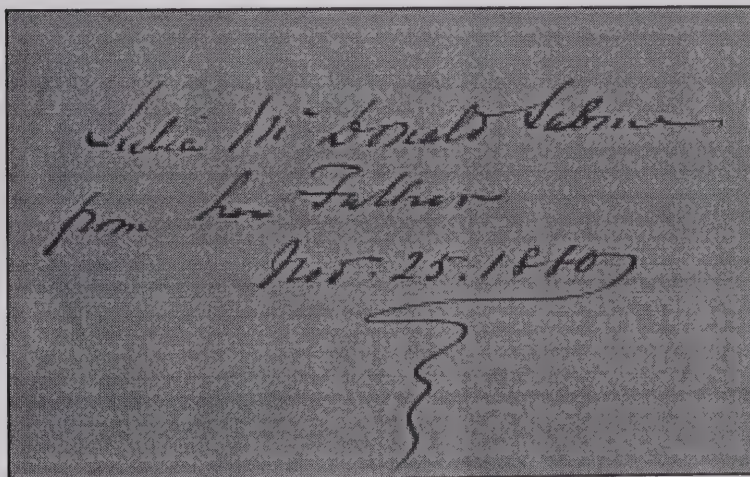 Julia McDonald Sabine
from her Father
Nov. 25. 1860